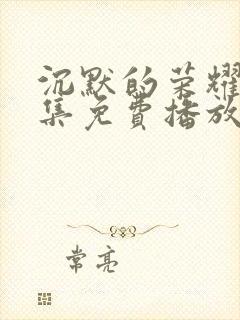 沉默的荣耀
集免费播放
常亮